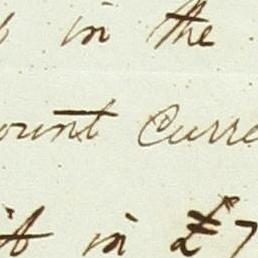 in the
ount Curre
it in £7